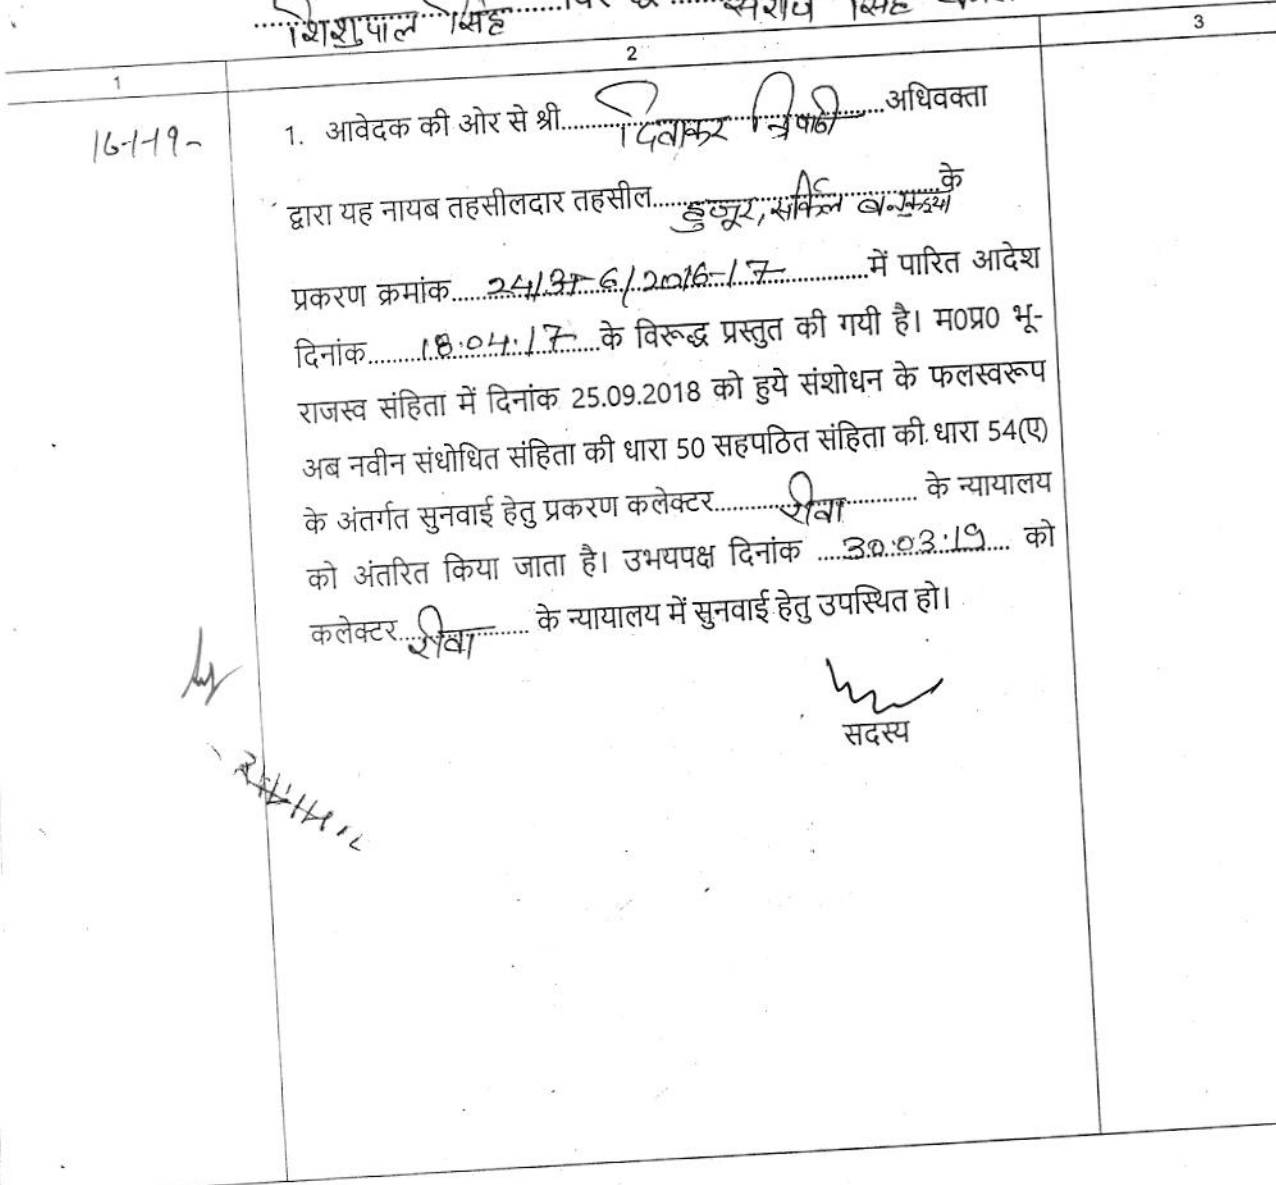 शिशुपाल सिंह
1 2 3
16-1-19-
1. आवेदक की ओर से श्री..........दिवाकर त्रिपाठी..........अधिवक्ता
द्वारा यह नायब तहसीलदार तहसील.....हुजूर, सर्किल..........के
प्रकरण क्रमांक.....24/अ-6/2016-17..........में पारित आदेश
दिनांक..........18.04.17.....के विरूद्ध प्रस्तुत की गयी है। म0प्र0 भू-
राजस्व संहिता में दिनांक 25.09.2018 को हुये संशोधन के फलस्वरूप
अब नवीन संधोधित संहिता की धारा 50 सहपठित संहिता की धारा 54(ए)
के अंतर्गत सुनवाई हेतु प्रकरण कलेक्टर..........रीवा.......... के न्यायालय
को अंतरित किया जाता है। उभयपक्ष दिनांक ....30.03.19.... को
कलेक्टर....रीवा.......... के न्यायालय में सुनवाई हेतु उपस्थित हो।
सदस्य